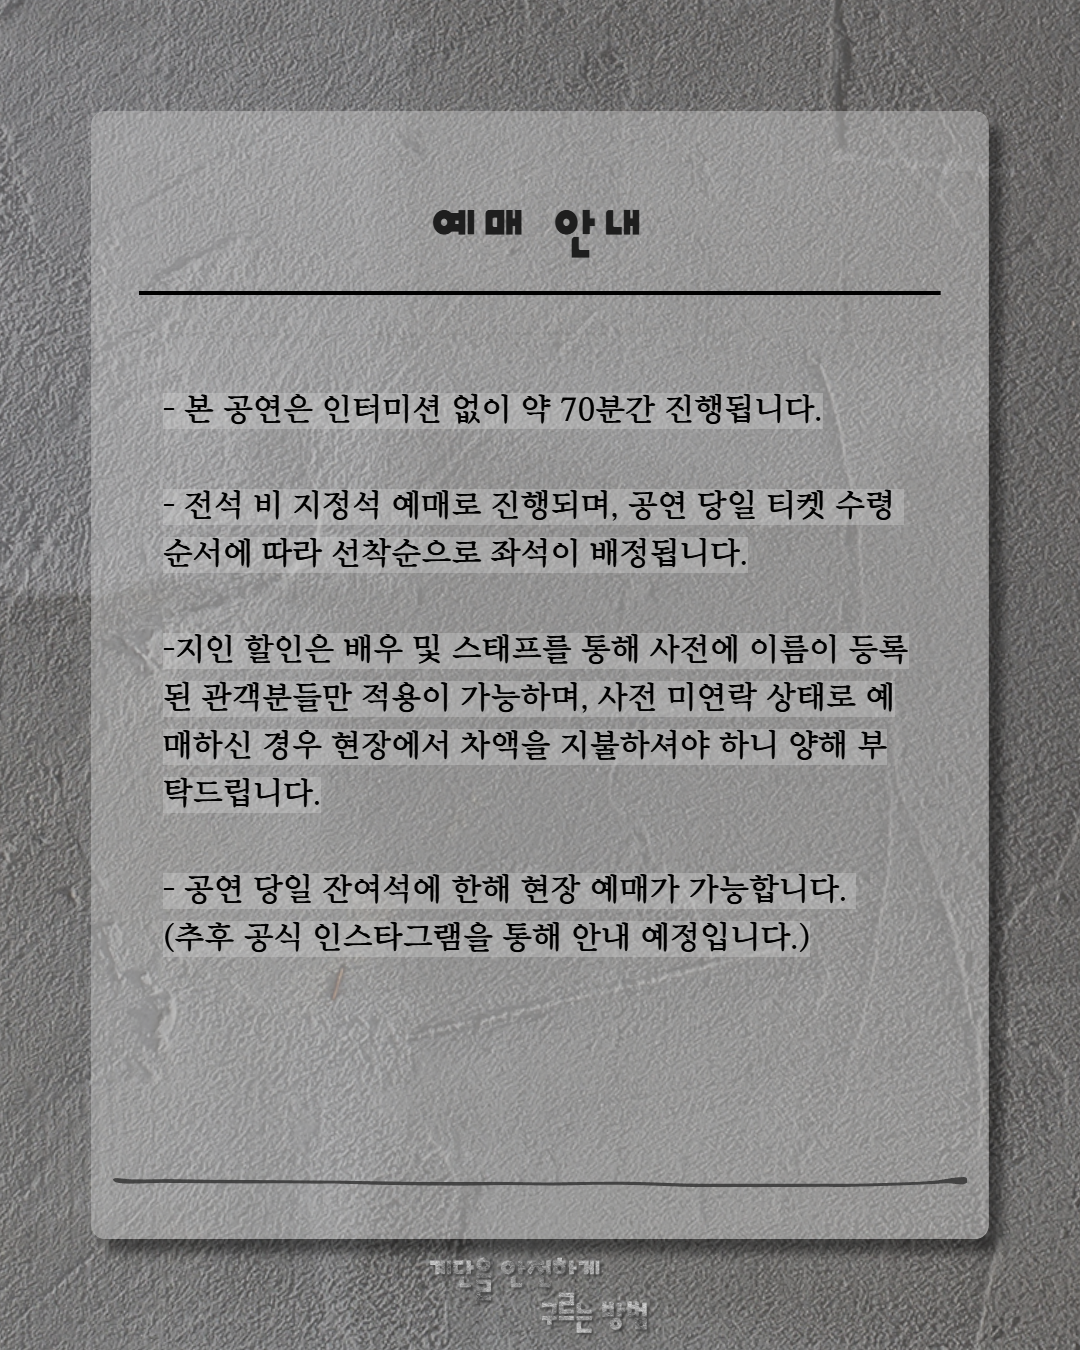 예매 안내
- 본 공연은 인터미션 없이 약 70분간 진행됩니다.
- 전석 비 지정석 예매로 진행되며, 공연 당일 티켓 수령
순서에 따라 선착순으로 좌석이 배정됩니다.
-지인 할인은 배우 및 스태프를 통해 사전에 이름이 등록
된 관객분들만 적용이 가능하며, 사전 미연락 상태로 예
매하신 경우 현장에서 차액을 지불하셔야 하니 양해 부
탁드립니다.
- 공연 당일 잔여석에 한해 현장 예매가 가능합니다.
(추후 공식 인스타그램을 통해 안내 예정입니다.)
계단을 안전하게
구르는 방법